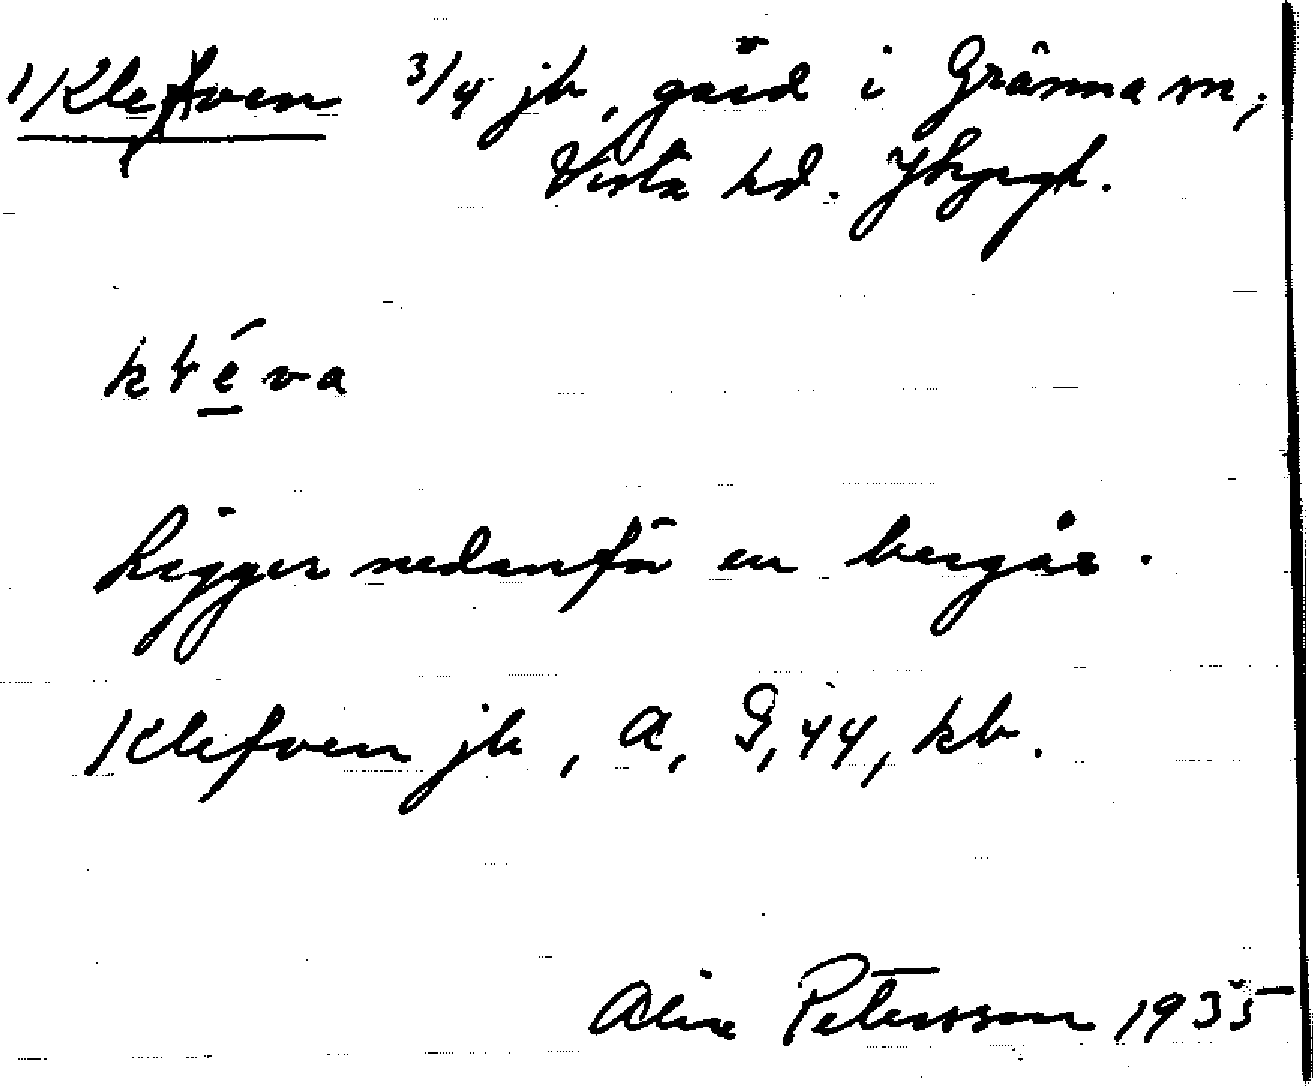 1/ Klefven 3/4 jb, gård i Gränna sn,
Vista hd. Jkpgl.
kléva
Ligger nedanför en bergås.
Klefven jb, a, G, 44, kb.
Petersson 1935